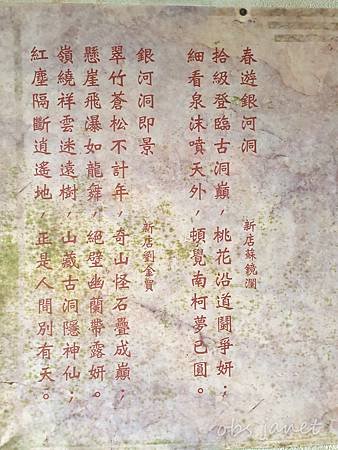 春遊銀河洞
新店蘇鏡瀾
拾級登臨古洞巔，桃花沿道鬪爭妍；
細看泉沫噴天外，頓覺南柯夢已圓。
銀河洞即景
新店劉金寶
翠竹蒼松不計年，奇山怪石疊成巔；
懸崖飛瀑如龍舞，絕壁幽蘭帶露妍。
嶺繞祥雲迷遠樹，山藏古洞隱神仙；
紅塵隔斷逍遙地，正是人間別有天。
obs janet